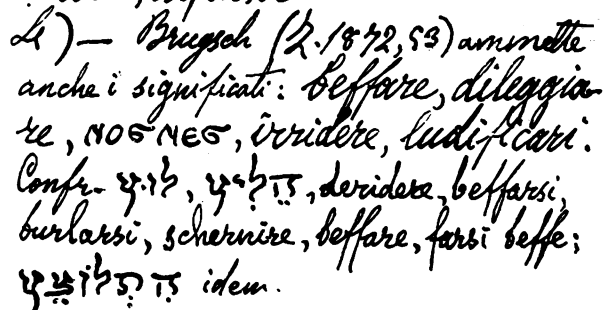 ) — Brugsch (Z. 1872, 53) ammette
anche i significati: beffare, dileggia-
re, ⲛⲟϭⲛⲉϭ, irridere, ludificari.
Confr. לוּץ, הֵלִיץ, deridere, beffarsi,
burlarsi, schernire, beffare, farsi beffe;
הִתְלוֹצֵץ idem.